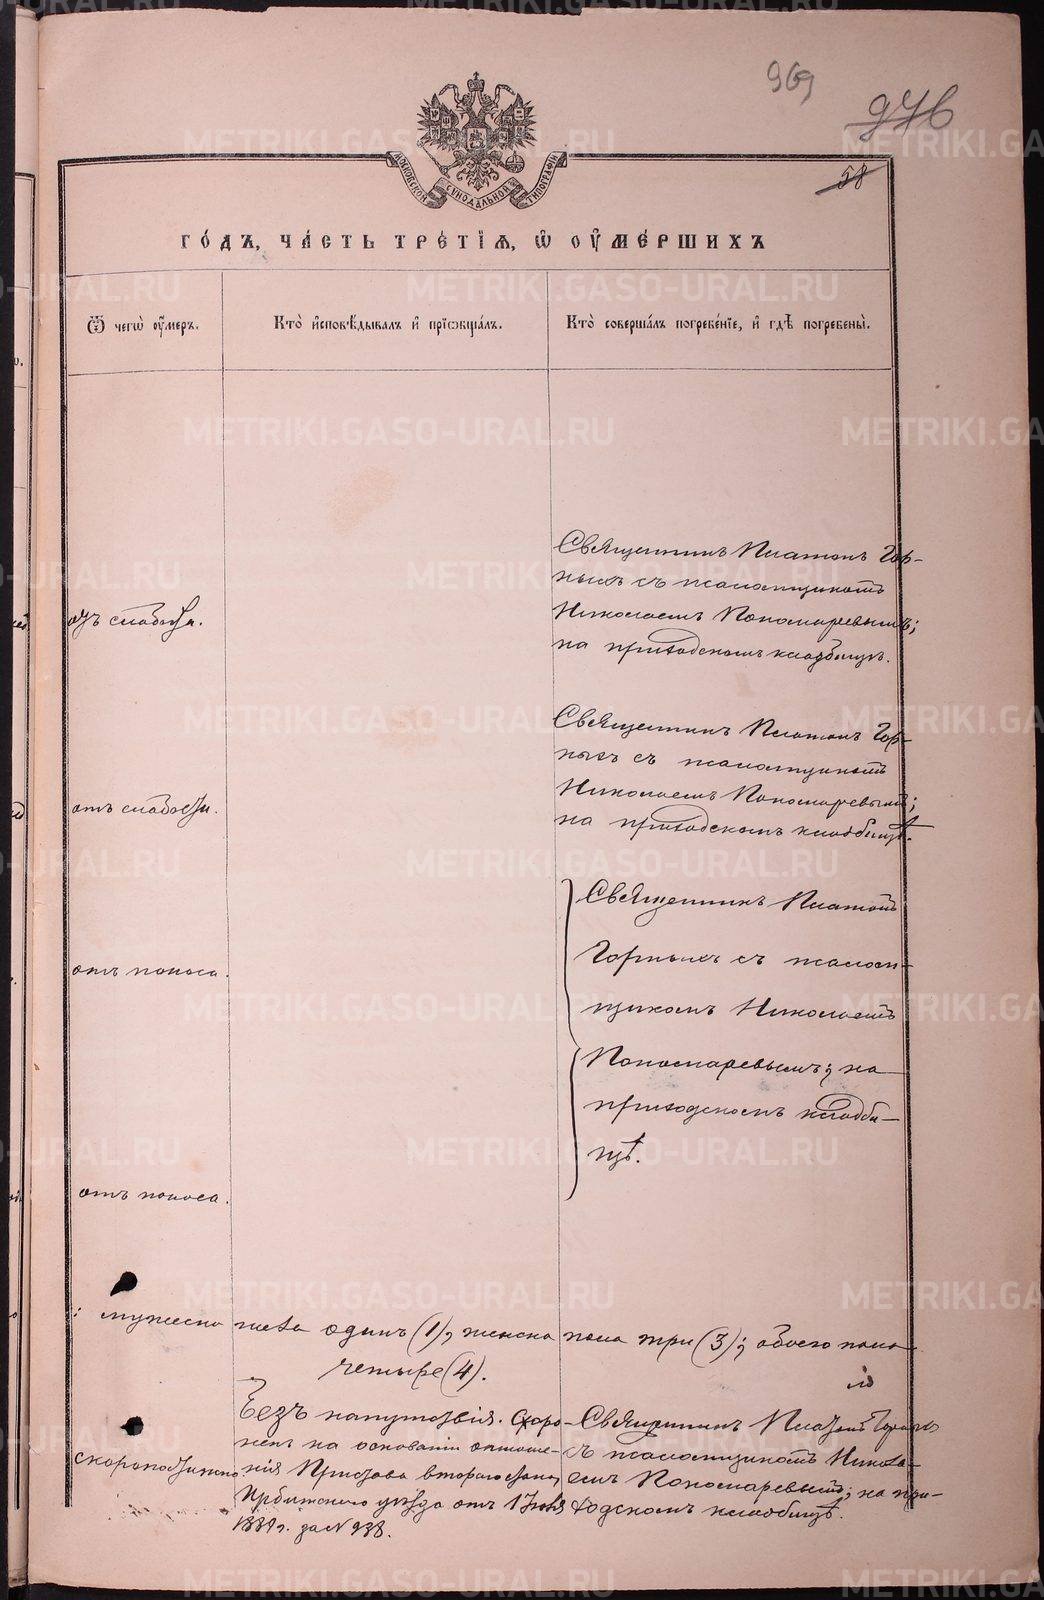 969
976
58
МОСКОВСКОЙ СѴНОДАЛЬНОЙ ТИПОГРАФІИ
ГО́ДЪ, ЧА́СТЬ ТРЕ́ТІѦ, Ѡ҆ ОУ҆МЕ́РШИХЪ
Ѿ чегѡ̀ оу҆́меръ.
Кто̀ и҆сповѣ́дывалъ и҆ прїѡбща́лъ.
Кто̀ соверша́лъ погребе́нїе, и҆ гдѣ̀ погребены̀.
Священникъ Платонъ Гор-
ныхъ съ псаломщикомъ
отъ слабости.
Николаемъ Пономаревымъ;
на приходскомъ кладбищѣ.
Священникъ Платонъ Гор-
ныхъ съ псаломщикомъ
отъ слабости.
Николаемъ Пономаревымъ;
на приходскомъ кладбищѣ.
Священникъ Платонъ
отъ поноса.
Горныхъ съ псалом-
щикомъ Николаемъ
Пономаревымъ; на
приходскомъ кладби-
щѣ.
отъ поноса.
: мужеска пола одинъ (1), женска пола три (3); обоего пола
четыре (4).
скоропостижно
Безъ напутствія. Схоро-
ненъ на основаніи отноше-
нія Пристава втораго стана,
Ирбитского уѣзда отъ 1 Іюля
1889 г. за № 938.
Священникъ Платонъ Горныхъ
съ псаломщикомъ Никола-
емъ Пономаревымъ; на при-
ходскомъ кладбищѣ.
METRIKI.GASO-URAL.RU